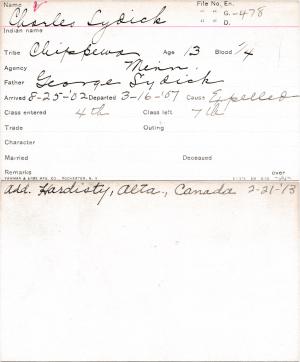 Name Charles Sydick File No. En.
Indian name " " G. -478
" " D.
Tribe Chippewa Age 13 Blood 1/4
Agency Minn.
Father George Sydick
Arrived 8-25-'02 Departed 3-16-'07 Cause Expelled
Class entered 4th Class left 7th
Trade Outing
Character
Married Deceased
Remarks over
YAWMAN & ERBE MFG. CO., ROCHESTER, N. Y.
Add. Hardisty, Alta., Canada 2-21-'13